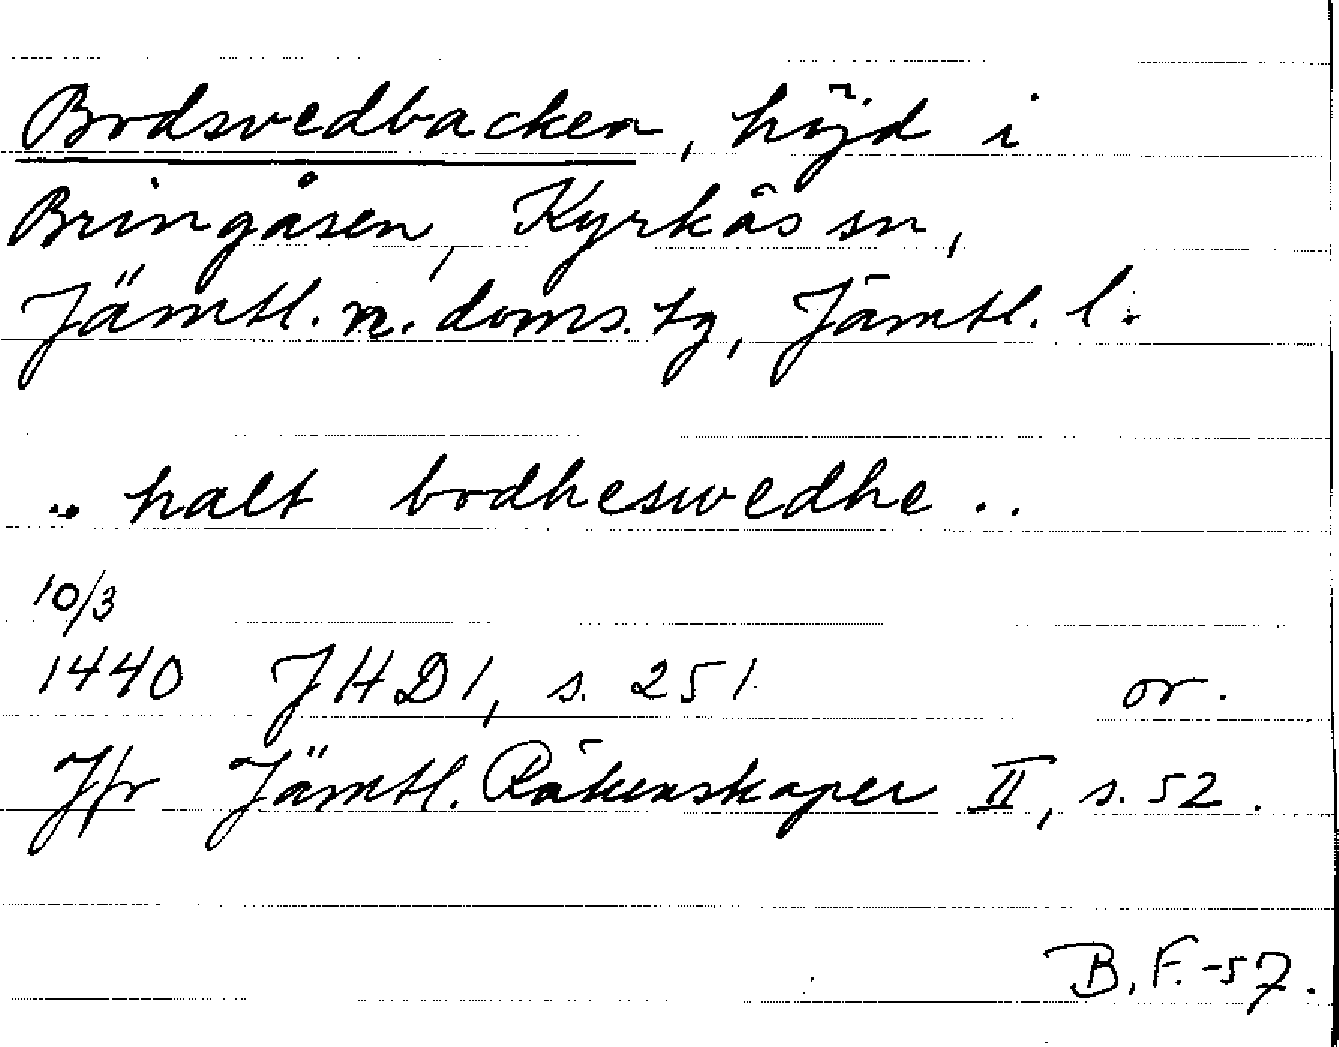 Bodsvedbacken, höjd i
Bringåsen, Kyrkås sn,
Jämtl. n. doms. tg, Jämtl. l.
.. halt bodheswedhe ..
10/3
1440 JHD1, s. 251 or.
Jfr Jämtl. Räkenskaper II, s. 52.
B.F.-57.